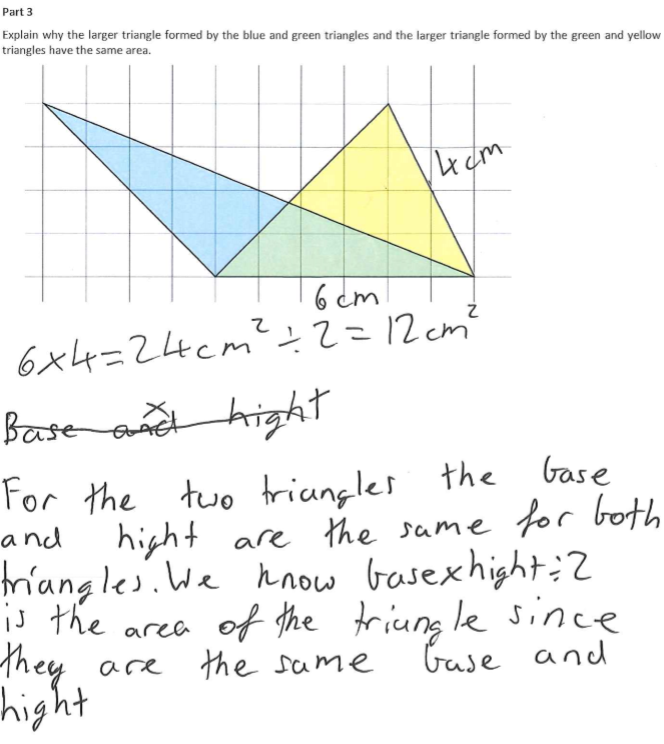 Part 3
Explain why the larger triangle formed by the blue and green triangles and the larger triangle formed by the green and yellow
triangles have the same area.
4cm
6cm
6×4=24cm²÷2=12cm²
Base and x hight
For the two triangles the base
and hight are the same for both
triangles. We know basexhight÷2
is the area of the triangle since
they are the same base and
hight